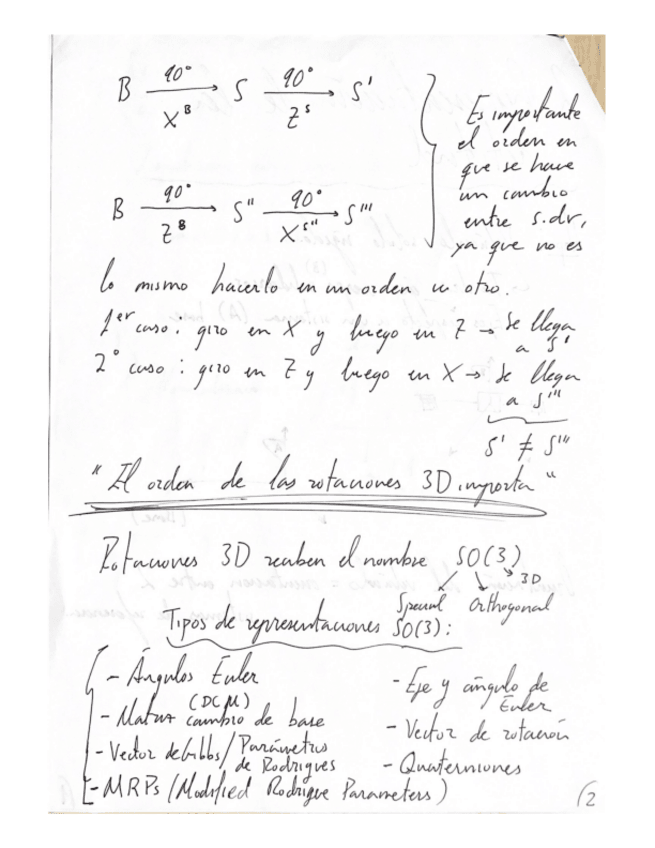 B 90° X^B → S 90° Z^S → S'
Es importante
el orden en
que se hace
un cambio
entre s.dr,
ya que no es
B 90° Z^B → S'' 90° X^S'' → S'''
lo mismo hacerlo en un orden u otro.
1er caso: giro en X y luego en Z → Se llega
a S'
2° caso: giro en Z y luego en X → Se llega
a S'''
S' ≠ S'''
"El orden de las rotaciones 3D importa"
Rotaciones 3D reciben el nombre SO(3)
3D
Special Orthogonal
Tipos de representaciones SO(3):
- Ángulos Euler
- Matriz (DCM) cambio de base
- Vector de Gibbs / Parámetros
de Rodrigues
- MRPs (Modified Rodrigue Parameters)
- Eje y ángulo de
Euler
- Vector de rotación
- Quaterniones
(2